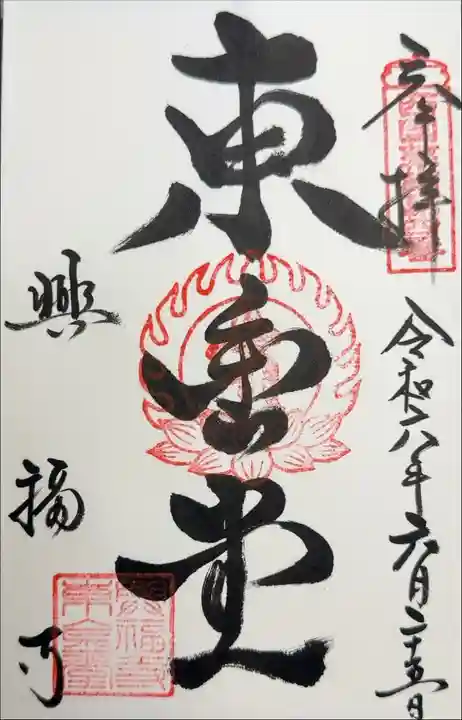 奉拝
令和六年六月二十五日
東金堂
興福寺